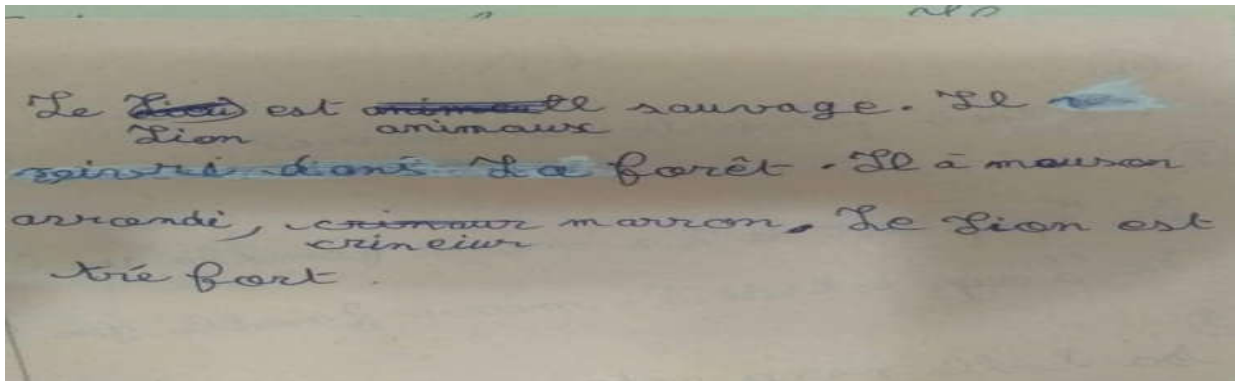 Le Lion est animaux sauvage. Il
dans La forêt. Il à mouson
arrondi, crineiur marron. Le Lion est
trïe fort.